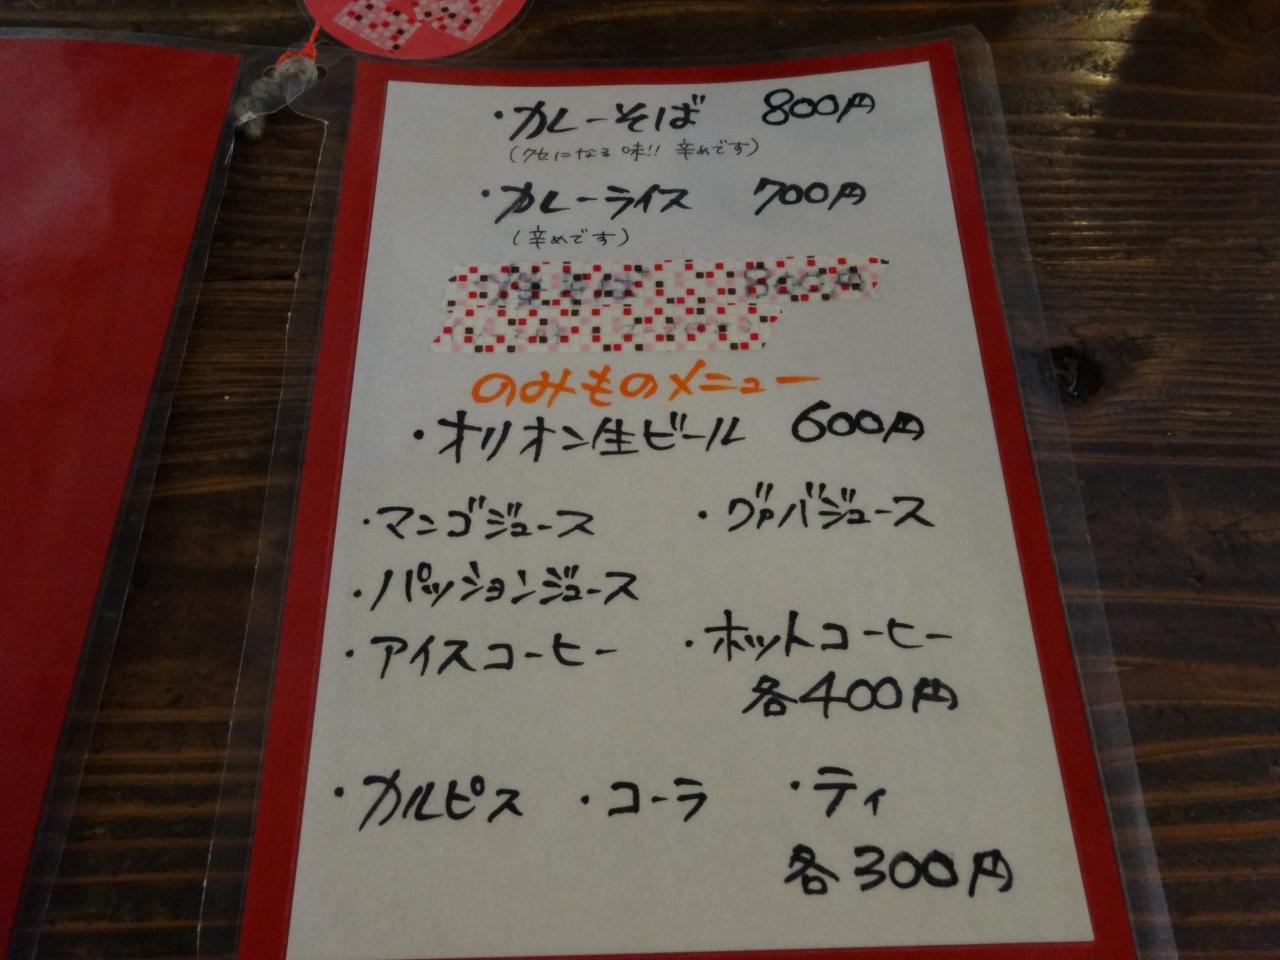 ・カレーそば 800円
(クセになる味!! 辛めです)
・カレーライス 700円
(辛めです)
そば 800円
のみものメニュー
・オリオン生ビール 600円
・マンゴジュース ・グァバジュース
・パッションジュース
・アイスコーヒー ・ホットコーヒー
各400円
・カルピス ・コーラ ・ティ
各300円